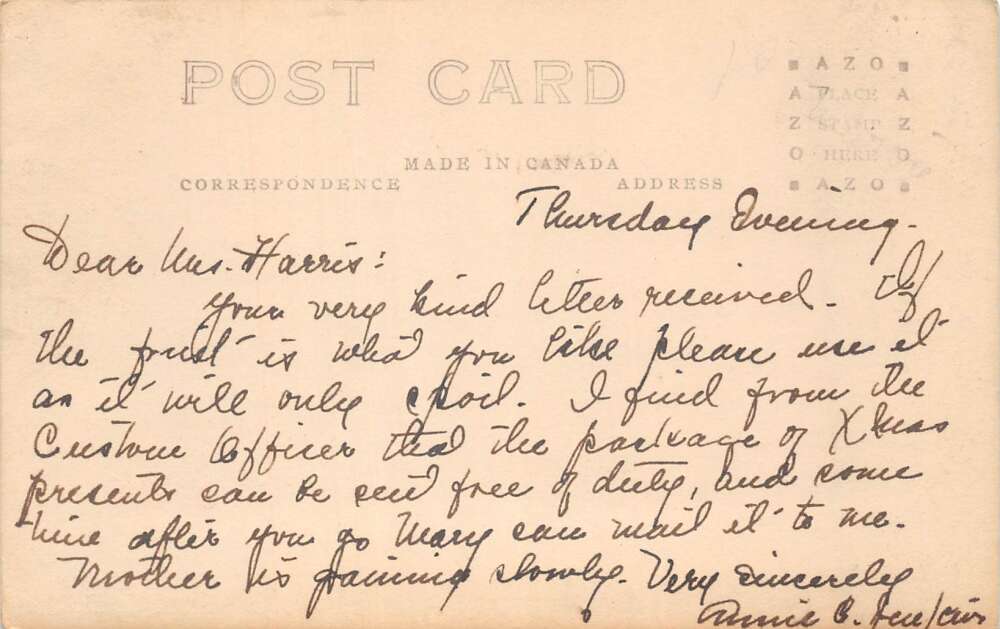 POST CARD
AZO
A PLACE A
Z STAMP Z
O HERE O
AZO
MADE IN CANADA
CORRESPONDENCE ADDRESS
Thursday Evening.
Dear Mrs. Harris:
Your very kind letter received. If
the fruit is what you like please use it
as it will only spoil. I find from the
Custom Officer that the package of Xmas
presents can be sent free of duty, and some
time after you go Mary can mail it to me.
Mother is gaining slowly. Very sincerely
Annie C. Jenkins